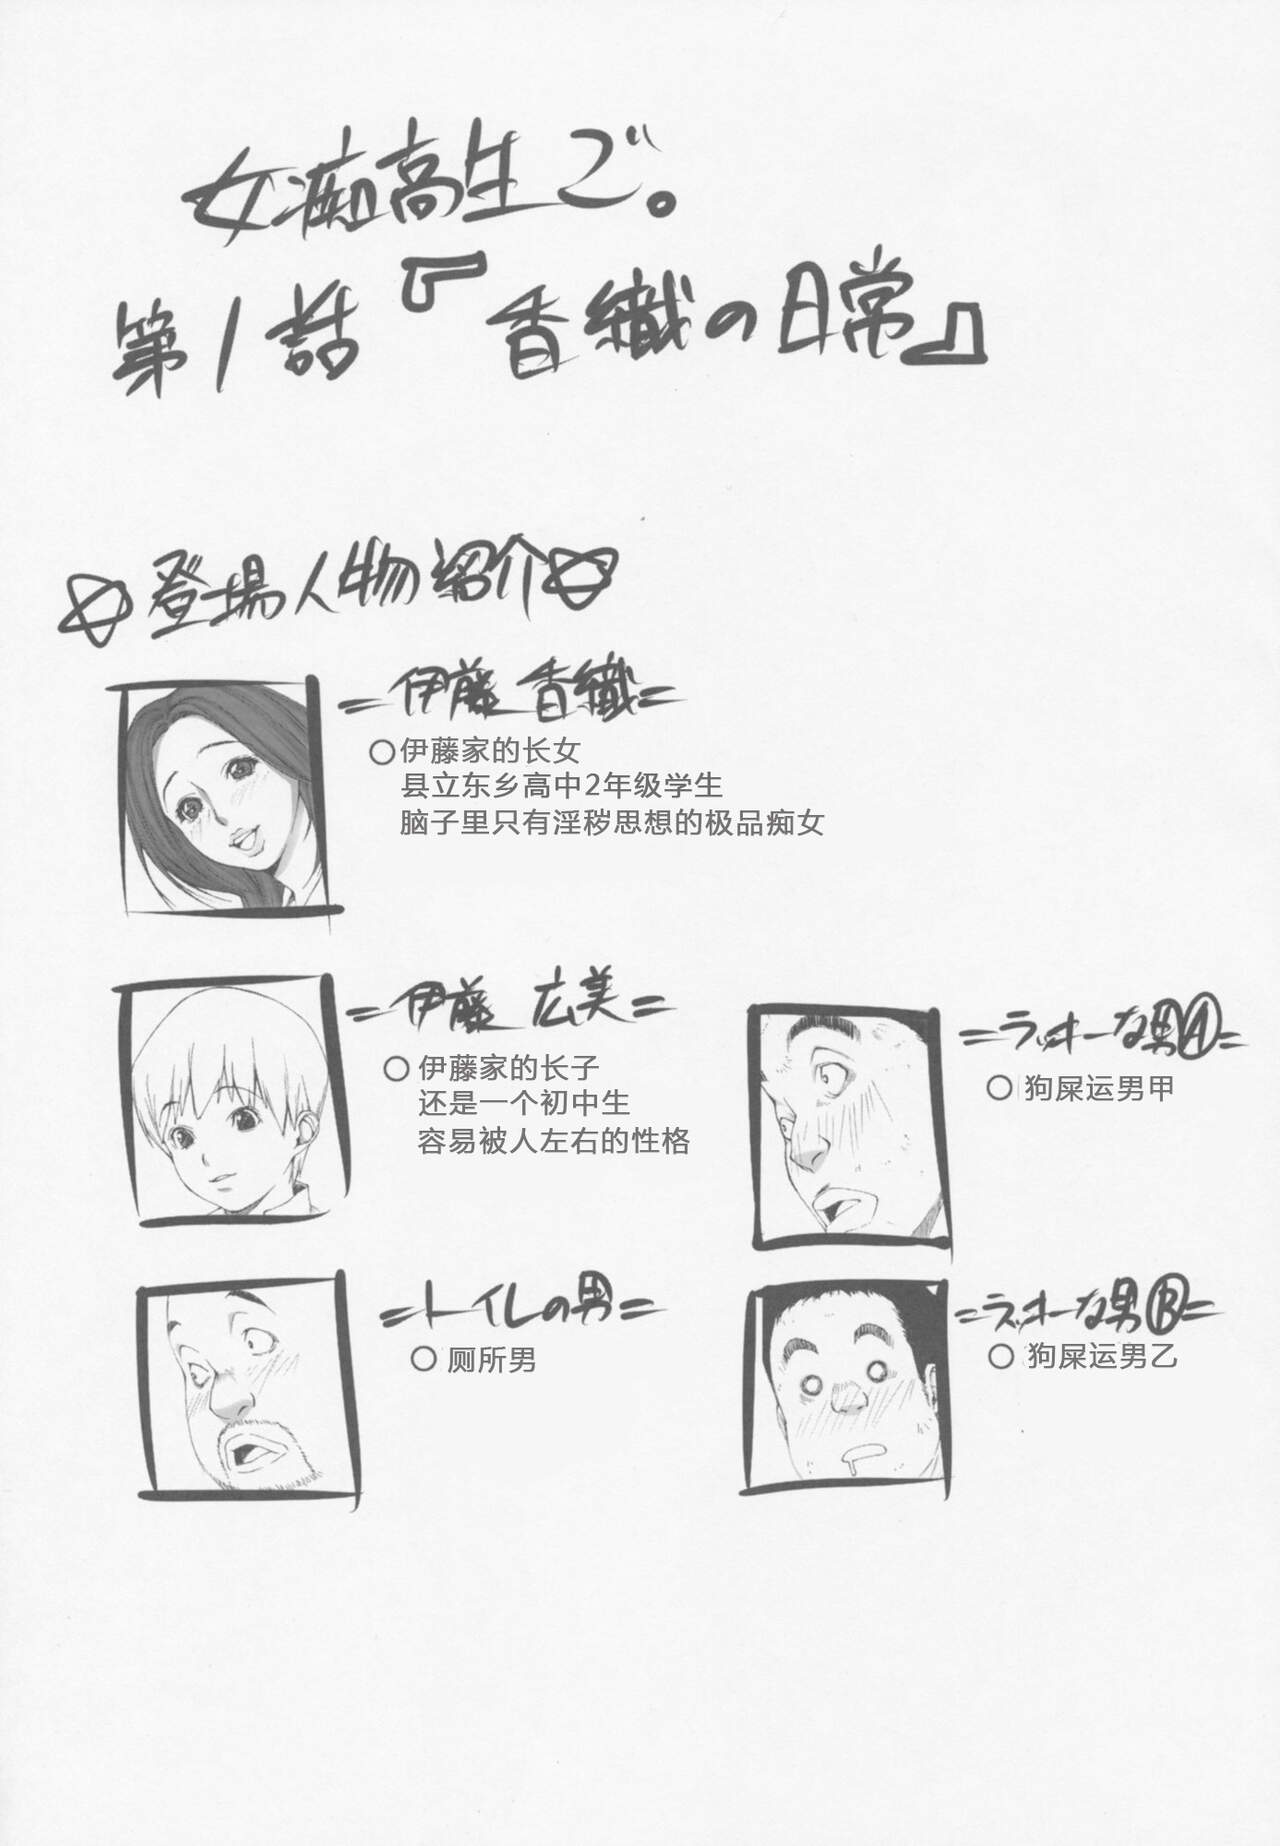 女痴高生で。
第1話『香織の日常』
登場人物紹介
=伊藤 香織=
○伊藤家的长女
县立东乡高中2年级学生
脑子里只有淫秽思想的极品痴女
=伊藤 広美=
○伊藤家的长子
还是一个初中生
容易被人左右的性格
=ラッキーな男Ⓐ=
○狗屎运男甲
=トイレの男=
○厕所男
=ラッキーな男Ⓑ=
○狗屎运男乙